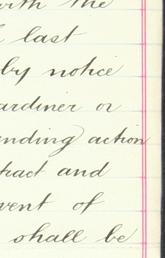 with the
last
by notice
ardiner or
ending action
tract and
vent of
shall be